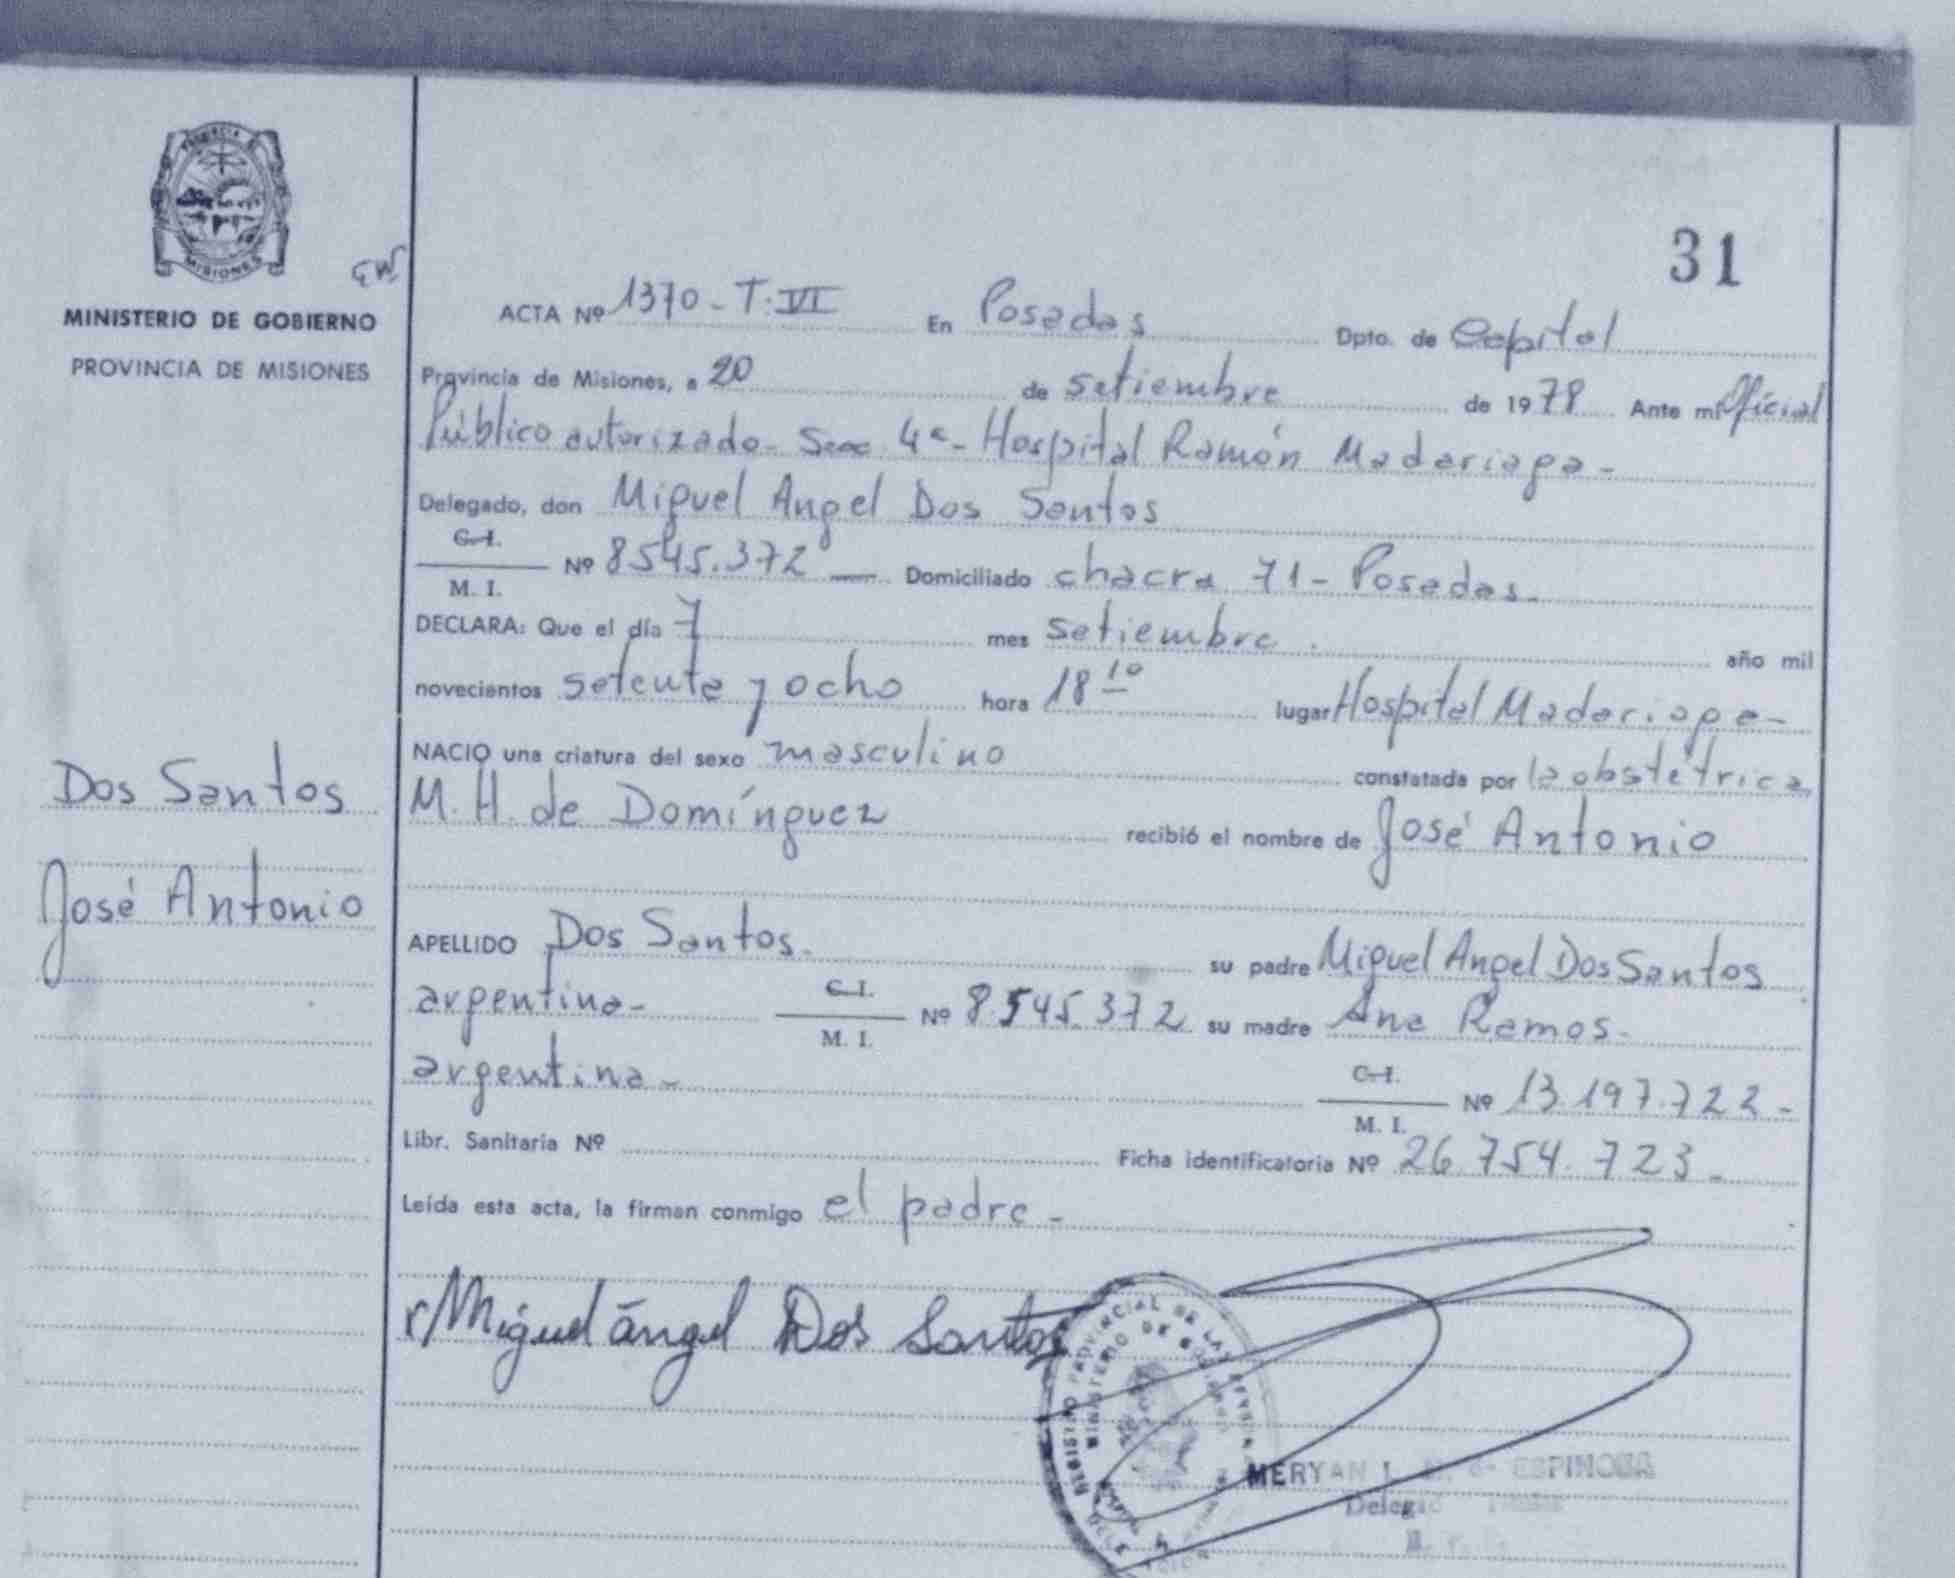 PROVINCIA
MISIONES
GW
MINISTERIO DE GOBIERNO
PROVINCIA DE MISIONES
Dos Santos
José Antonio
31
ACTA Nº 1370 - T. VI En Posadas Dpto. de Capital
Provincia de Misiones, a 20 de setiembre de 1978 Ante mí Oficial
Público autorizado - Secc 4ª - Hospital Ramón Madariaga -
Delegado, don Miguel Angel Dos Santos
C. I.
M. I. Nº 8545.372 — Domiciliado chacra 71 - Posadas -
DECLARA: Que el día 7 mes setiembre . año mil
novecientos setenta y ocho hora 18 10 lugar Hospital Madariaga -
NACIO una criatura del sexo masculino constatada por la obstétrica
M. H. de Domínguez recibió el nombre de José Antonio
APELLIDO Dos Santos - su padre Miguel Angel Dos Santos
argentino - C. I.
M. I. Nº 8.545.372 su madre Ana Ramos -
argentina - C. I.
M. I. Nº 13.197.722 -
Libr. Sanitaria Nº Ficha identificatoria Nº 26.754.723 -
Leída esta acta, la firman conmigo el padre -
Miguel ángel Dos Santos
PROVINCIAL DE LAS
MINISTERIO DE
MERYAN ESPINOSA